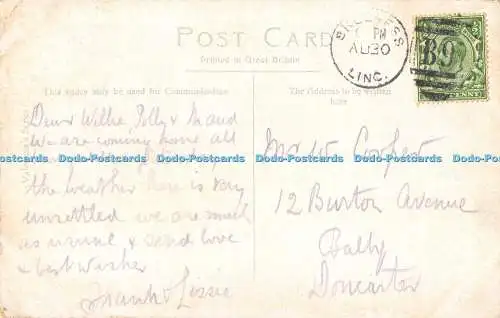 POST CARD
Printed in Great Britain
This space may be used for Communication
The Address to be written here
SKEGNESS
PM
AU 30
LINC.
B9
Dear Willie Polly & Maud
We are coming home all
Dodo-Postcards Dodo-Postcards Dodo-Postcards Dodo-Postcards Dodo-Postcards Dodo-Postcards
the weather here is very
unsettled we are much
as usual & send love
& best wishes
Frank & Lissie
Mr W Cooper
12 Burton Avenue
Balby
Doncaster